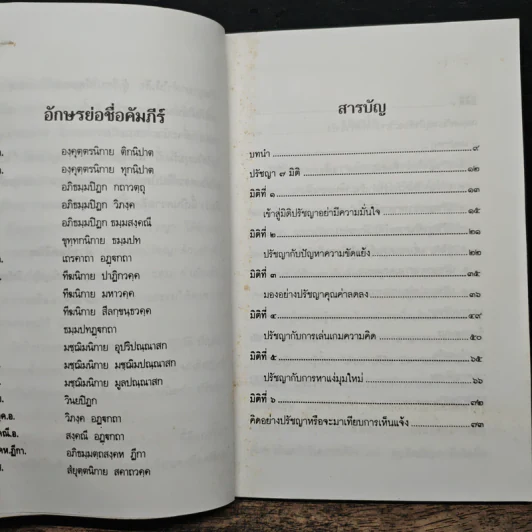 อักษรย่อชื่อคัมภีร์
องฺคุตฺตรนิกาย ติกนิปาต
องฺคุตฺตรนิกาย ทุกนิปาต
อภิธมฺมปิฎก กถาวตฺถุ
อภิธมฺมปิฎก วิภงฺค
อภิธมฺมปิฎก ธมฺมสงฺคณี
ขุทฺทกนิกาย ธมฺมปท
เถรคาถา อฏฺฐกถา
ทีฆนิกาย ปาฏิกวคฺค
ทีฆนิกาย มหาวคฺค
ทีฆนิกาย สีลกฺขนฺธวคฺค
ธมฺมปทฏฺฐกถา
มชฺฌิมนิกาย อุปริปณฺณาสก
มชฺฌิมนิกาย มชฺฌิมปณฺณาสก
มชฺฌิมนิกาย มูลปณฺณาสก
วินยปิฎก
ค.อ. วิภงฺค อฏฺฐกถา
คณี.อ. สงฺคณี อฏฺฐกถา
ห.ฎีกา อภิธมฺมตฺถสงฺคห ฎีกา
สํยุตฺตนิกาย สคาถวคฺค
สารบัญ
บทนำ ๙
ปรัชญา ๗ มิติ ๑๒
มิติที่ ๑ ๑๓
เข้าสู่มิติปรัชญาอย่ามีความมั่นใจ ๑๕
มิติที่ ๒ ๒๑
ปรัชญากับปัญหาความขัดแย้ง ๒๒
มิติที่ ๓ ๓๕
มองอย่างปรัชญาคุณค่าลดลง ๓๖
มิติที่ ๔ ๔๙
ปรัชญากับการเล่นเกมความคิด ๕๐
มิติที่ ๕ ๖๕
ปรัชญากับการหาแง่มุมใหม่ ๖๖
มิติที่ ๖ ๗๒
คิดอย่างปรัชญาหรือจะมาเทียบการเห็นแจ้ง ๗๓